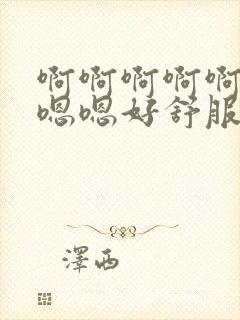 啊啊啊啊啊
嗯嗯好舒服
澤西